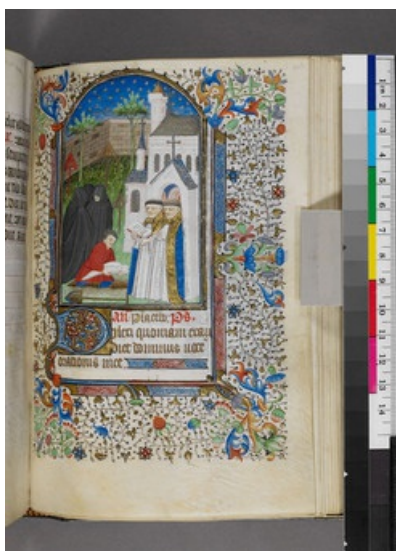 An Placebo. Ps.
Dilexi quoniam exau
diet dominus uocē
orationis mee.
1
2
3
4
5
6
7
8
9
10
11
12
13
14